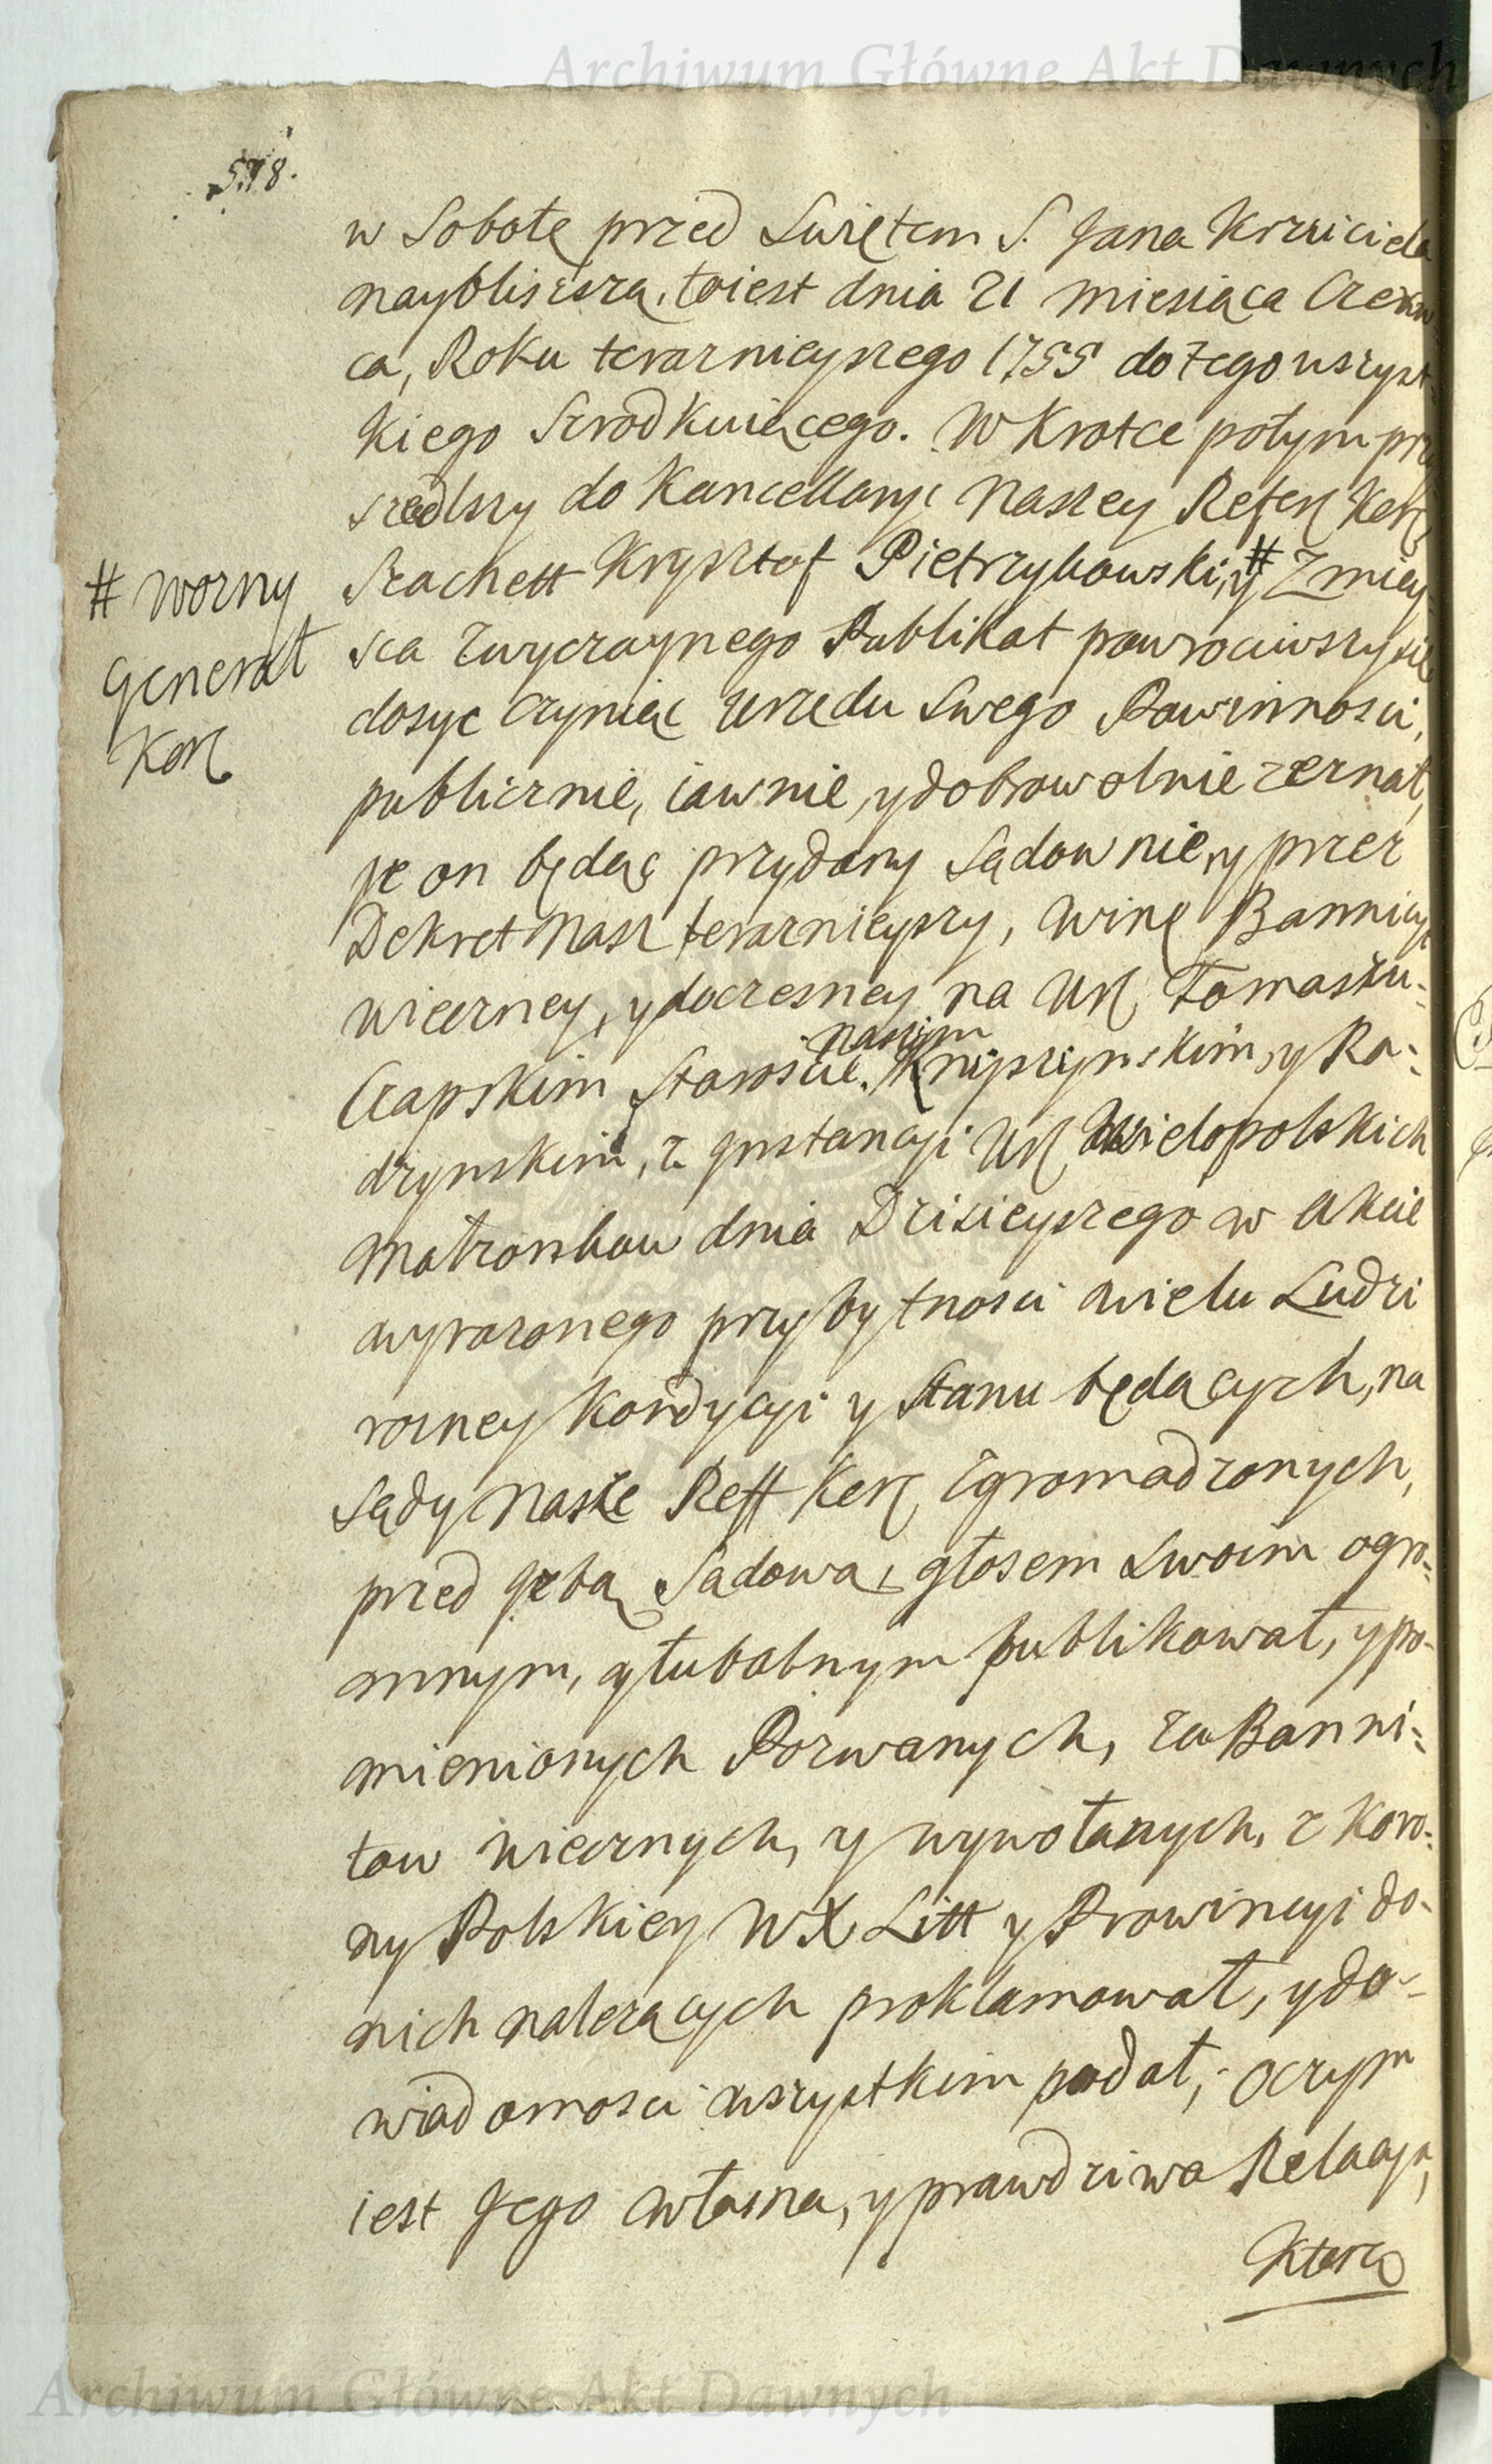 Archiwum Główne Akt Dawnych
578.
w Sobotę przed Swiętem S. Jana Krzciciela
naybliszszą, toiest dnia 21 miesiąca Czerw
ca, Roku teraznieyszego 1755 do tego wszyst-
kiego Szrodkuiącego. W Krotce potym przy
szedłszy do Kancellaryi Naszey Refer Kor
Szachett Krysztof Pietrzykowski, # y Zmiey-
sca zwyczaynego Publikat powrociwszy się
dosyc czyniąc Urzedu Swego Powinnosci,
publicznie, iawnie, y dobrowolnie zeznał,
że on będąc przydany Sądownie, y przez
Dekret Nasz teraznieyszy, winę Bannicyi
wieczney, y doczesney na Ur Tomaszu-
Czapskim Staroscie naszym Knyszynskim, y Ra-
dzynskim, z Jnstancyi Ur Wielopolskich
Matżonkow dnia Dzisieyszego w Akcie
wyrazonego przy bytnosci wielu Ludzi
rozney Kondycyi y Stanu będących, na
Sądy Nasze Reff Kor zgromadzonych,
przed Jzbą Sadową, głosem Swoim ogro-
mnym, y tubalnym publikował, y po-
mienionych Pozwanych, za Banni-
tow wiecznych, y wywołanych, z Koro-
ny Polskiey W X Litt y Prowincyi do-
nich nalezących proklamował, y do-
wiadomosci wszystkim podał, o czym
iest Jego własna, y prawdziwa Relacya,
Ktorą
# Wozny
Generał
Kor
Archiwum Główne Akt Dawnych